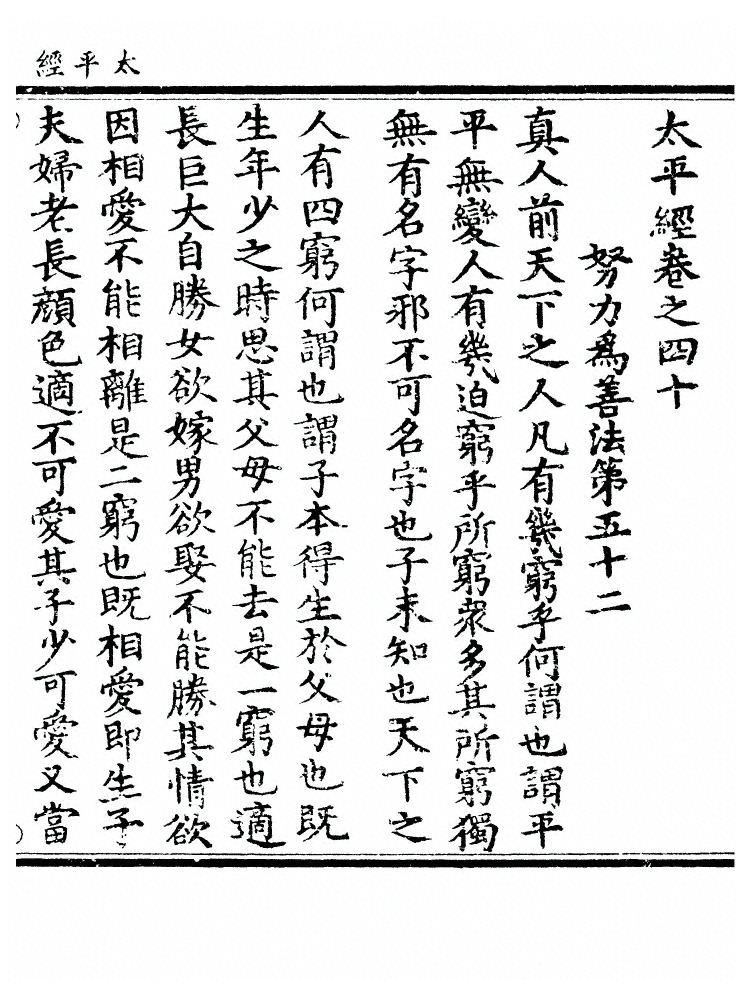 太平經
太平經卷之四十
努力爲善法第五十二
真人前天下之人凡有幾窮乎何謂也謂平
平無變人有幾迫窮乎所窮衆多其所窮獨
無有名字邪不可名字也子未知也天下之
人有四窮何謂也謂子本得生於父母也既
生年少之時思其父母不能去是一窮也適
長巨大自勝女欲嫁男欲娶不能勝其情欲
因相愛不能相離是二窮也既相愛即生子
夫婦老長顔色適不可愛其子少可愛又當